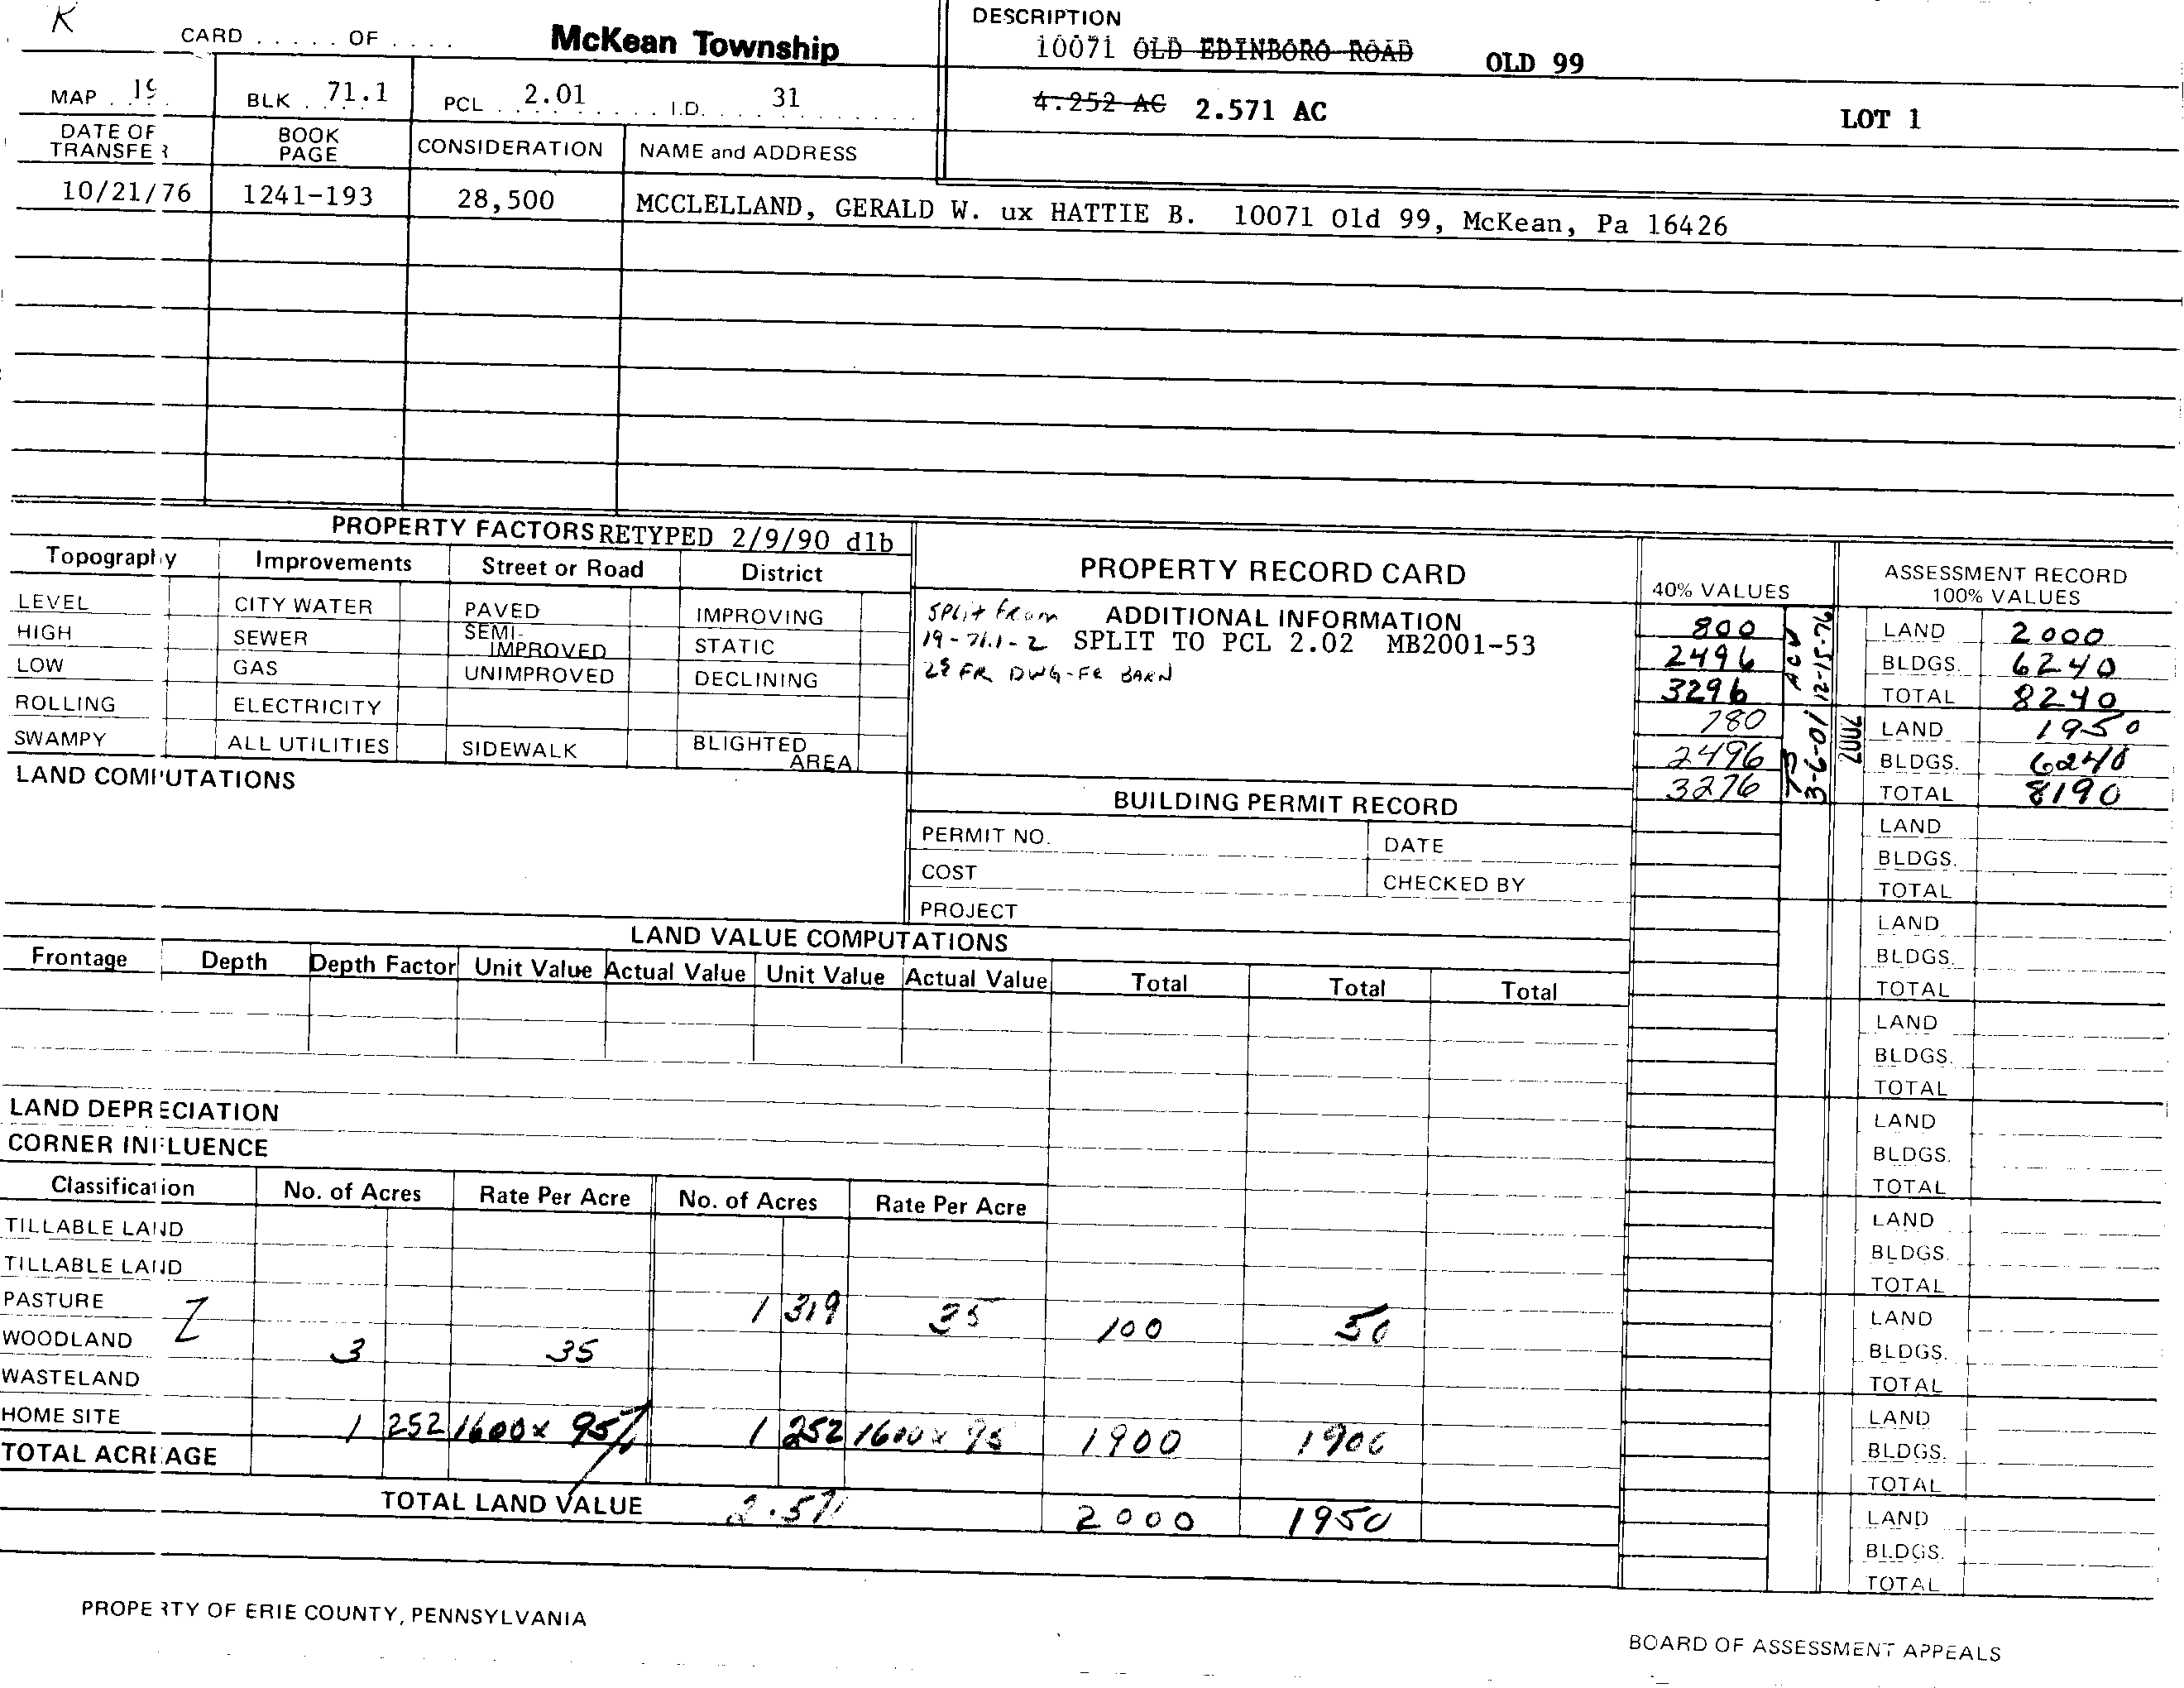 K
CARD . . . . . OF . . . .
McKean Township
DESCRIPTION
10071 OLD EDINBORO ROAD OLD 99
4.252 AC 2.571 AC LOT 1
MAP . . 19 BLK . 71.1 PCL . . 2.01 I.D. 31
DATE OF TRANSFER BOOK PAGE CONSIDERATION NAME and ADDRESS
10/21/76 1241-193 28,500 MCCLELLAND, GERALD W. ux HATTIE B. 10071 Old 99, McKean, Pa 16426
PROPERTY FACTORS RETYPED 2/9/90 dlb
Topography Improvements Street or Road District
LEVEL CITY WATER PAVED IMPROVING
HIGH SEWER SEMI-IMPROVED STATIC
LOW GAS UNIMPROVED DECLINING
ROLLING ELECTRICITY
SWAMPY ALL UTILITIES SIDEWALK BLIGHTED AREA
LAND COMPUTATIONS
PROPERTY RECORD CARD
Split from ADDITIONAL INFORMATION
19-71.1-2 SPLIT TO PCL 2.02 MB2001-53
FR DWG-FR BARN
BUILDING PERMIT RECORD
PERMIT NO. DATE
COST CHECKED BY
PROJECT
40% VALUES
ASSESSMENT RECORD
100% VALUES
800 LAND 2000
2496 BLDGS. 6240
3296 TOTAL 8240
12-15-76
780 LAND 1950
2496 BLDGS. 6240
3276 TOTAL 8190
3-6-01
2002
LAND
BLDGS.
TOTAL
LAND
BLDGS.
TOTAL
LAND
BLDGS.
TOTAL
LAND
BLDGS.
TOTAL
LAND
BLDGS.
TOTAL
LAND
BLDGS.
TOTAL
LAND
BLDGS.
TOTAL
LAND
BLDGS.
TOTAL
LAND VALUE COMPUTATIONS
Frontage Depth Depth Factor Unit Value Actual Value Unit Value Actual Value Total Total Total
LAND DEPRECIATION
CORNER INFLUENCE
Classification No. of Acres Rate Per Acre No. of Acres Rate Per Acre
TILLABLE LAND
TILLABLE LAND
PASTURE 1 319 35 100 50
WOODLAND 3 35
WASTELAND
HOME SITE 1 252 1600 x 95% 1 252 1600 x 95 1900 1900
TOTAL ACREAGE
TOTAL LAND VALUE 2.571 2000 1950
PROPERTY OF ERIE COUNTY, PENNSYLVANIA
BOARD OF ASSESSMENT APPEALS